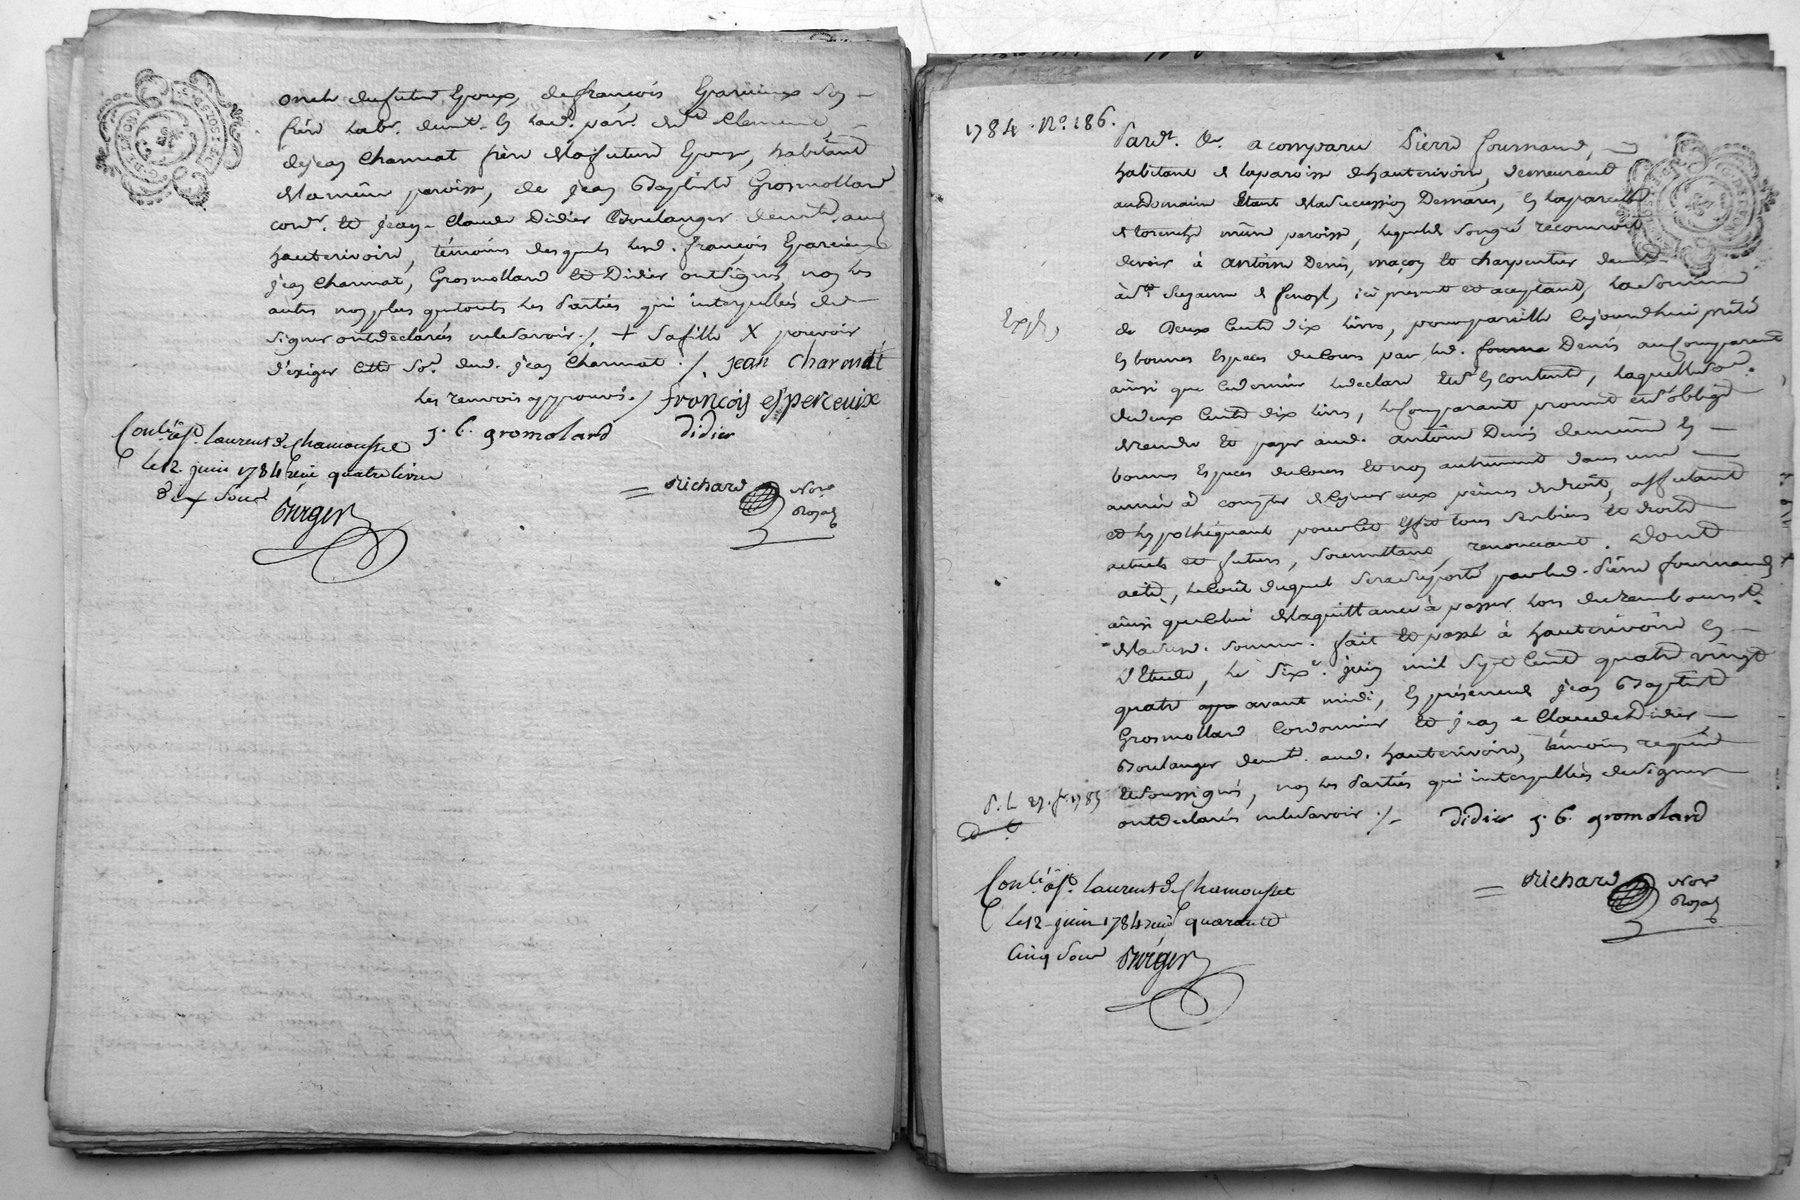 oncle du futur Epoux, de françois Eparcieux son
frère lab.r demt. en lad. par. de St Clement,
de jean Charmat frère de la future Epouse, habitant
la même paroisse, de jean Baptiste Grosmollard
cord.r et jean-Claude Didier Boulanger demt. aud.
hauterivoire, témoins desquels lesd. françois Eparcieux
jean Charmat, Grosmollard et Didier ont signé, non les
autres non plus que toutes les parties qui interpellées de
signer ont déclarés ne le savoir ./. + sa fille X pouvoir
d'exiger cette so.e dud. jean Charmat ./. jean charmat
les renvois approuvés ./ françois esperceuix
j. b. gromolard didier
Con.lé à St. laurent de Chamousset
le 12 juin 1784 reçu quatre livres
dix sous
Berger
Richard Not.re Royal
1784. No. 186.
Pard.t &c. a comparu Pierre fournand,
habitant de la paroisse d'hauterivoire, demeurant
au Domaine étant de la succession Desmares, en la parcelle
même paroisse, lequel de son gré reconnoit
devoir à antoine Denis, maçon et charpentier demt.
à Ste foy, ici present et acceptant, la somme
de deux cents dix livres, pour pareille cejourd'hui prêté
Exp.
en bonnes Espèces du Cours par led. fourna Denis au Comparant
ainsi que ce dernier le déclare et s'en contente, laquelle so.e
de deux cents dix livres, le Comparant promet et s'oblige
de rendre et payer aud. antoine Denis de même en
bonnes Espèces du Cours et non autrement dans une
année à compter de ce jour aux peines de droit, affectant
et hypothéquant pour cet effet tous ses biens et droits
actuels et futurs, soumettant, renonçant. Dont
acte, le Coût duquel sera supporté par led. Pierre fournand
ainsi que celui de la quittance à passer lors du remboursmt.
de lad. somme. fait et passé à hauterivoire en
l'Etude, le six.e juin mil sept cent quatre vingt
quatre app avant midi, en présence de jean Baptiste
Grosmollard Cordonnier et jean-Claude Didier
Boulanger demt. aud. hauterivoire, témoins requis
et soussignés, non les parties qui interpellées de signer
ont déclarés ne le savoir ./. Didier j. b. gromolard
Con.lé à St. laurent de Chamousset
le 12 juin 1784 reçu quarante
Cinq sous Berger
Richard Not.re Royal